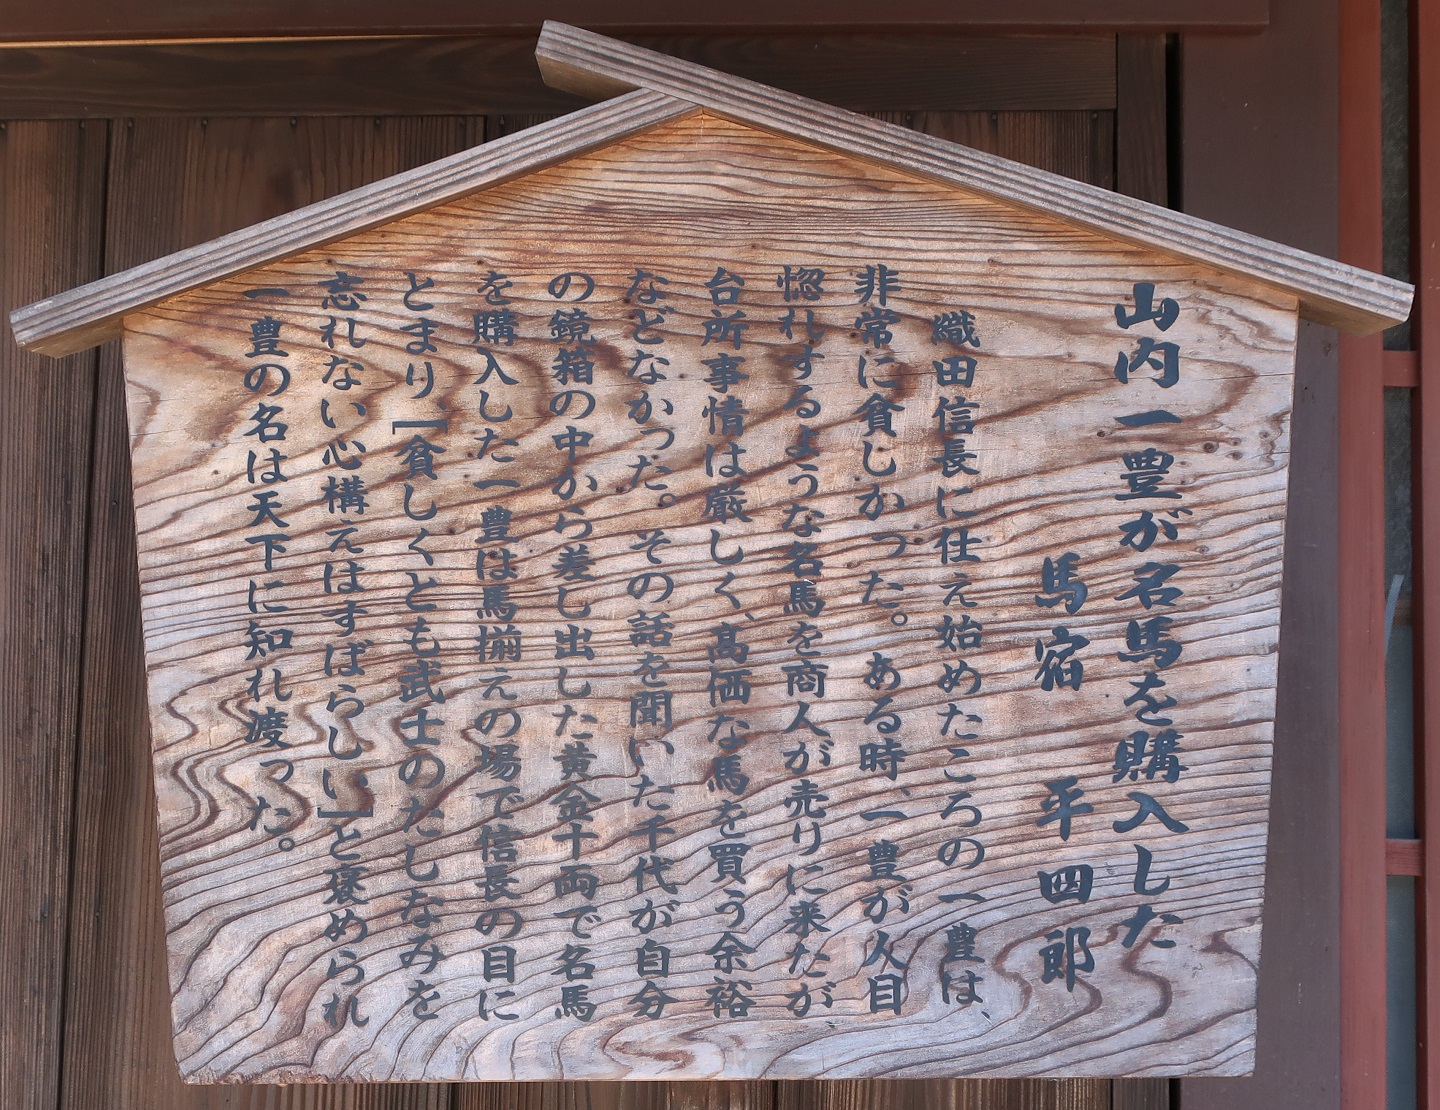 山内一豊が名馬を購入した
馬宿 平四郎
織田信長に仕え始めたころの一豊は、
非常に貧しかった。ある時、一豊が人目
惚れするような名馬を商人が売りに来たが、
台所事情は厳しく、高価な馬を買う余裕
などなかった。その話を聞いた千代が自分
の鏡箱の中から差し出した黄金十両で名馬
を購入した一豊は馬揃えの場で信長の目に
とまり、「貧しくとも武士のたしなみを
忘れない心構えはすばらしい」と褒められ
一豊の名は天下に知れ渡った。